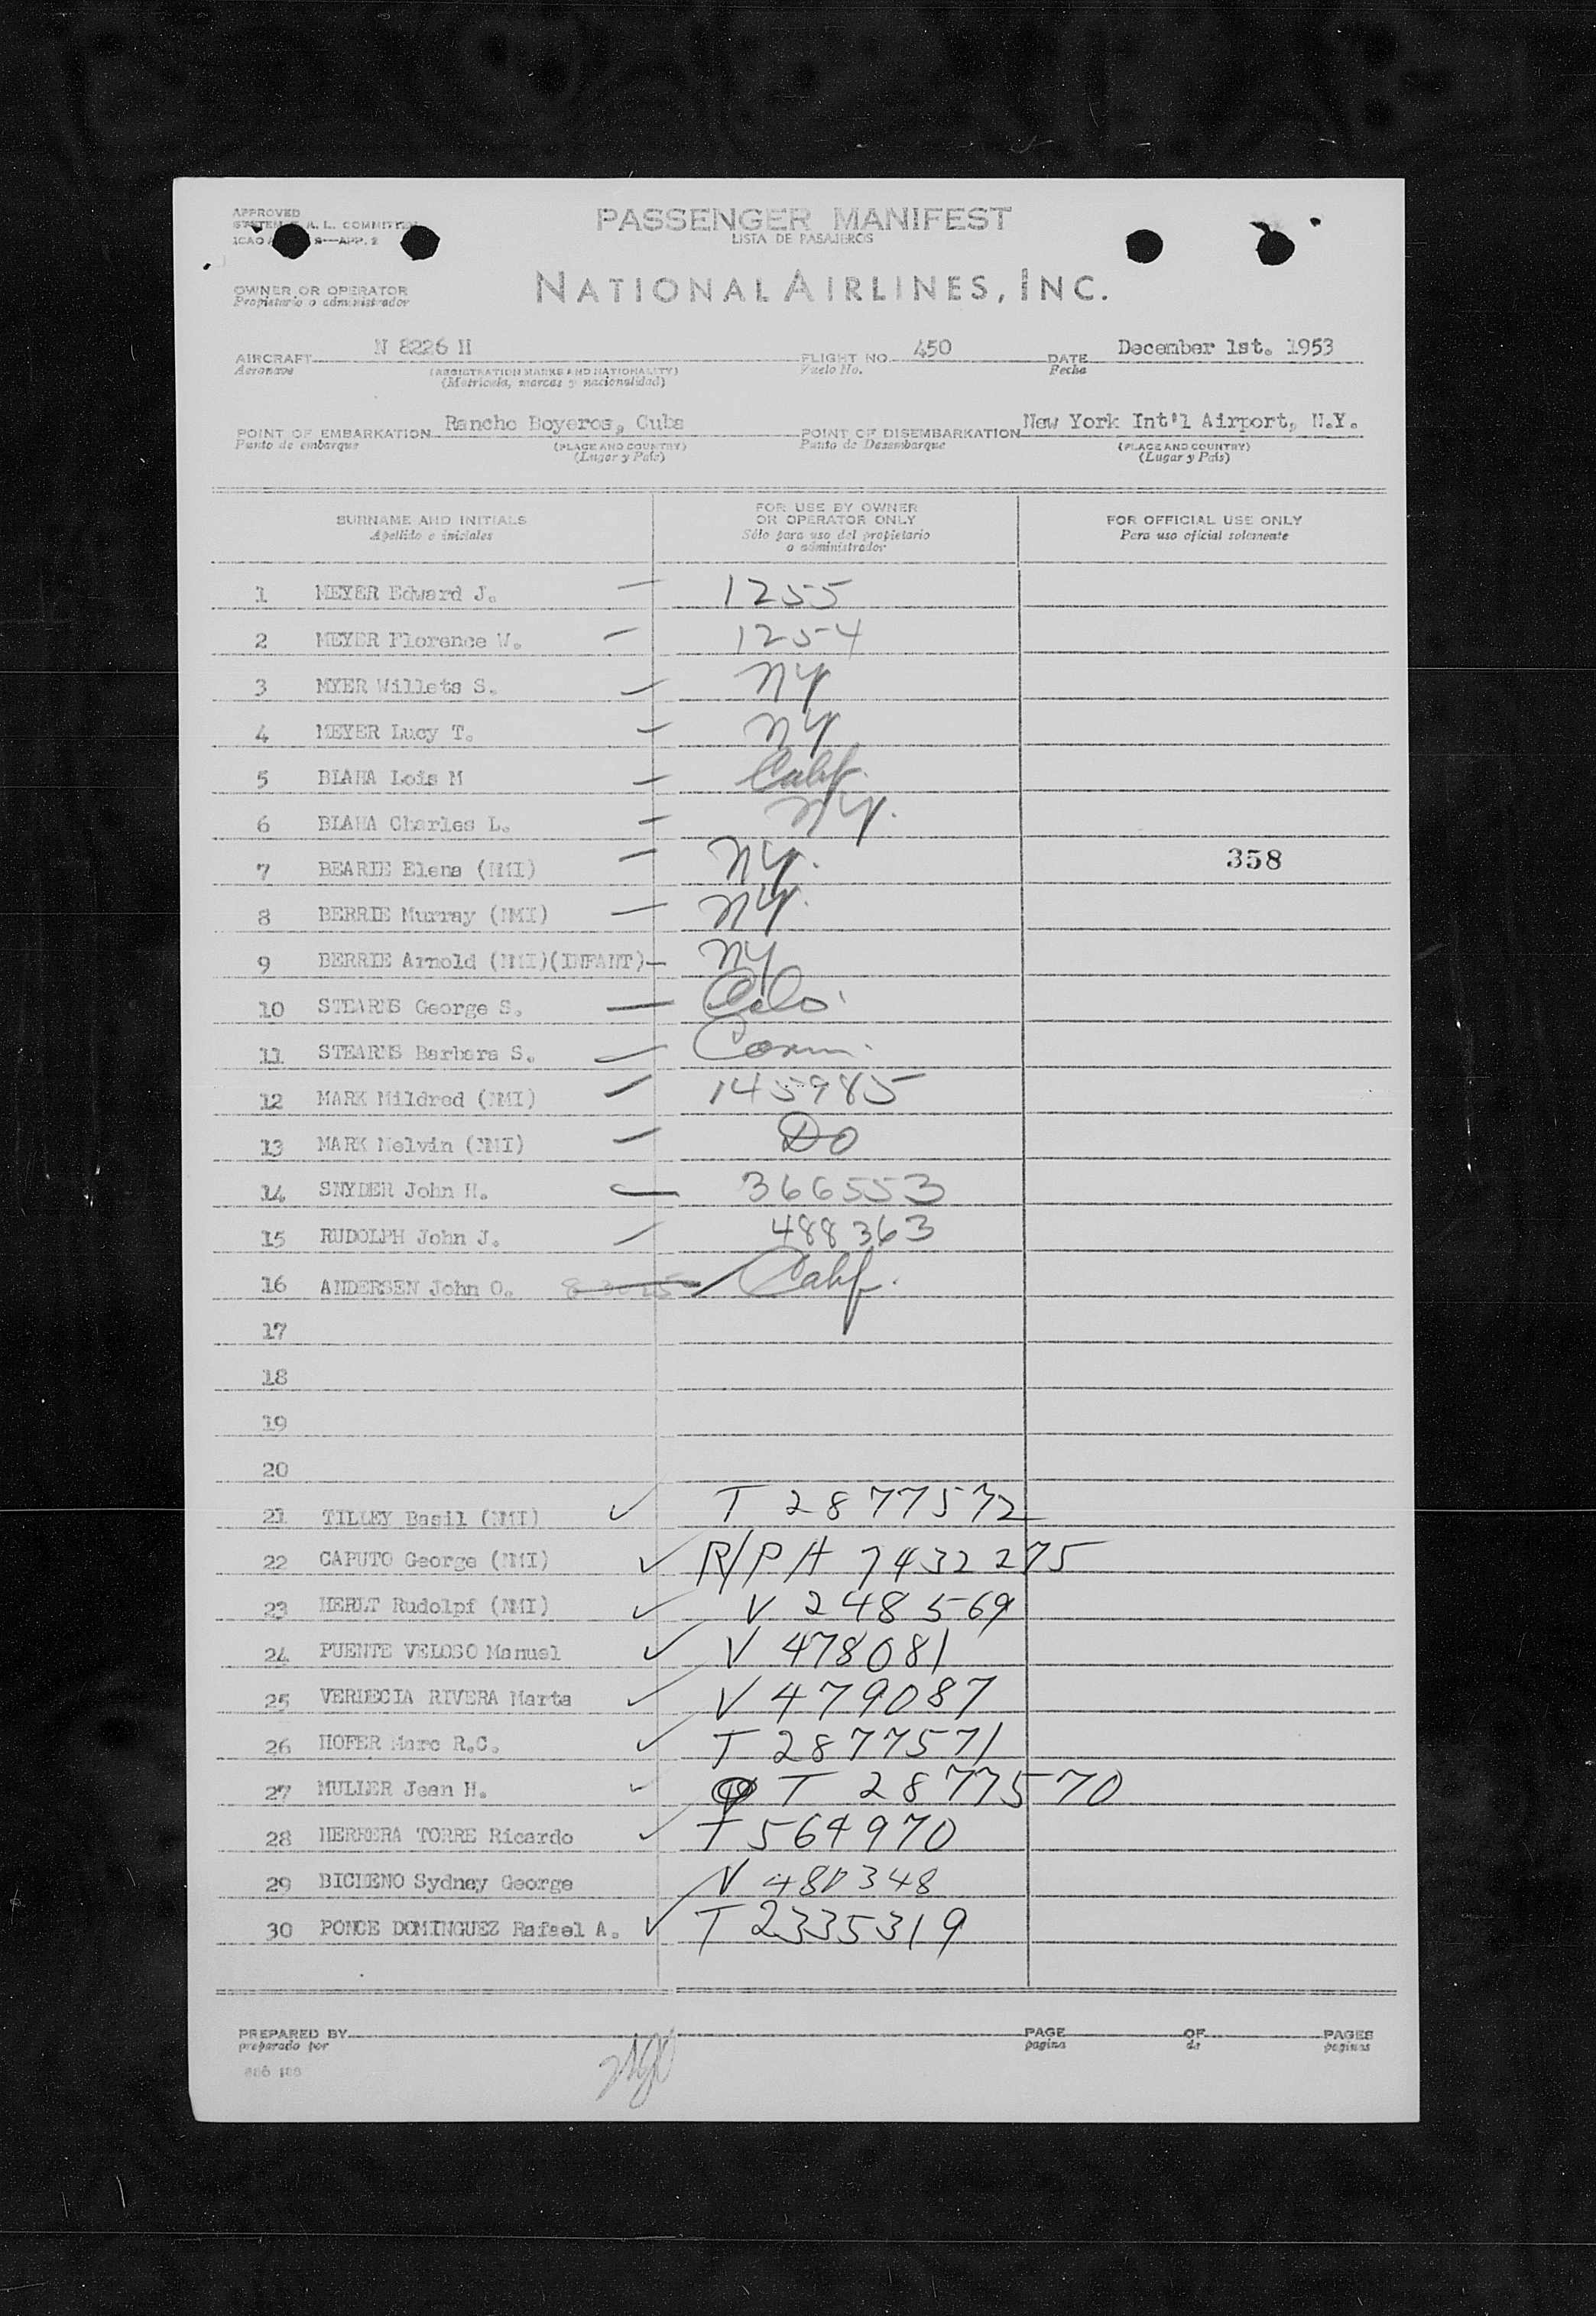 APPROVED
PASSENGER MANIFEST
A. L. COMMITTEE
LISTA DE PASAJEROS
ICAO 9—APP. 2
OWNER OR OPERATOR
Propietario o administrador
NATIONAL AIRLINES, INC.
AIRCRAFT N 8226 H FLIGHT NO. 450 DATE December 1st. 1953
Aeronave (REGISTRATION MARKS AND NATIONALITY) Vuelo No. Fecha
(Matricula, marcas y nacionalidad)
POINT OF EMBARKATION Rancho Boyeros, Cuba POINT OF DISEMBARKATION New York Int'l Airport, N.Y.
Punto de embarque (PLACE AND COUNTRY) Punto de Desembarque (PLACE AND COUNTRY)
(Lugar y País) (Lugar y País)
SURNAME AND INITIALS FOR USE BY OWNER OR OPERATOR ONLY FOR OFFICIAL USE ONLY
Apellido e iniciales Sólo para uso del propietario o administrador Para uso oficial solamente
1 MEYER Edward J. — 1255
2 MEYER Florence W. — 1254
3 MYER Willets S. — NY
4 MEYER Lucy T. — NY
5 BLAHA Lois M — Calif.
6 BLAHA Charles L. — NY.
7 BEARIE Elena (NMI) — NY. 358
8 BERRIE Murray (NMI) — NY.
9 BERRIE Arnold (NMI)(INFANT) — NY
10 STEARNS George S. — Colo.
11 STEARNS Barbara S. — Conn.
12 MARK Mildred (NMI) — 145985
13 MARK Melvin (NMI) — DO
14 SNYDER John H. — 366553
15 RUDOLPH John J. — 488363
16 ANDERSEN John O. Calif.
17
18
19
20
21 TILLEY Basil (NMI) ✓ T 2877572
22 CAPUTO George (NMI) ✓ R/P A 7432275
23 HERLT Rudolpf (NMI) ✓ V 248569
24 PUENTE VELOSO Manuel ✓ V 478081
25 VERDECIA RIVERA Marta ✓ V 479087
26 HOFER Marc R.C. ✓ T 2877571
27 MULLER Jean H. ✓ T 2877570
28 HERRERA TORRE Ricardo ✓ T 564970
29 BICHENO Sydney George ✓ V 480348
30 PONCE DOMINGUEZ Rafael A. ✓ T 2335319
PREPARED BY PAGE OF PAGES
preparado por pagina de paginas